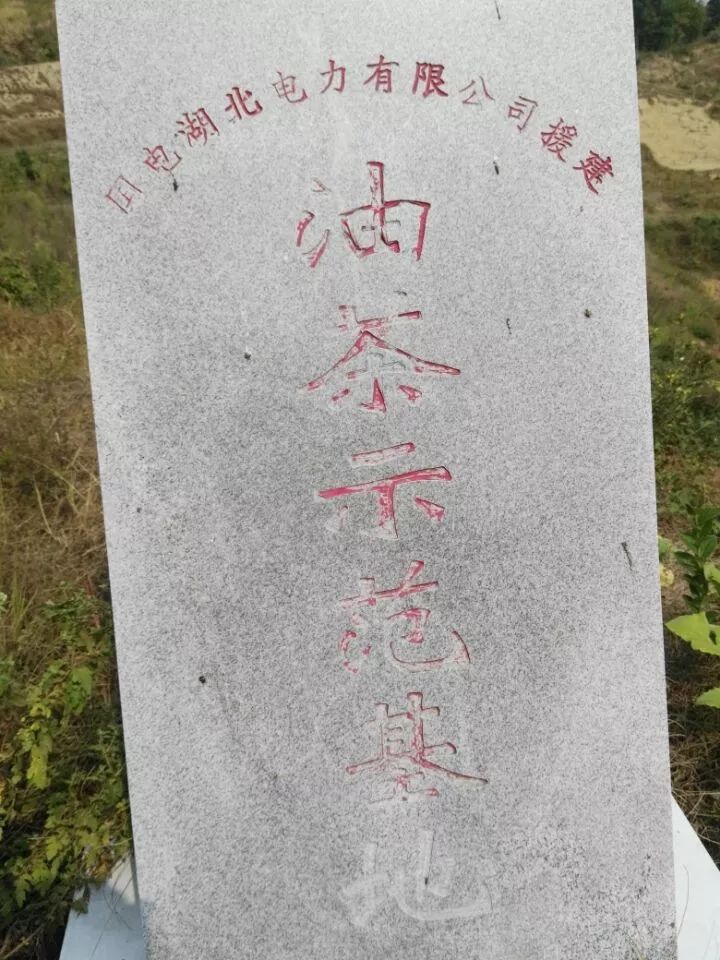 国电湖北电力有限公司援建
油茶示范基地